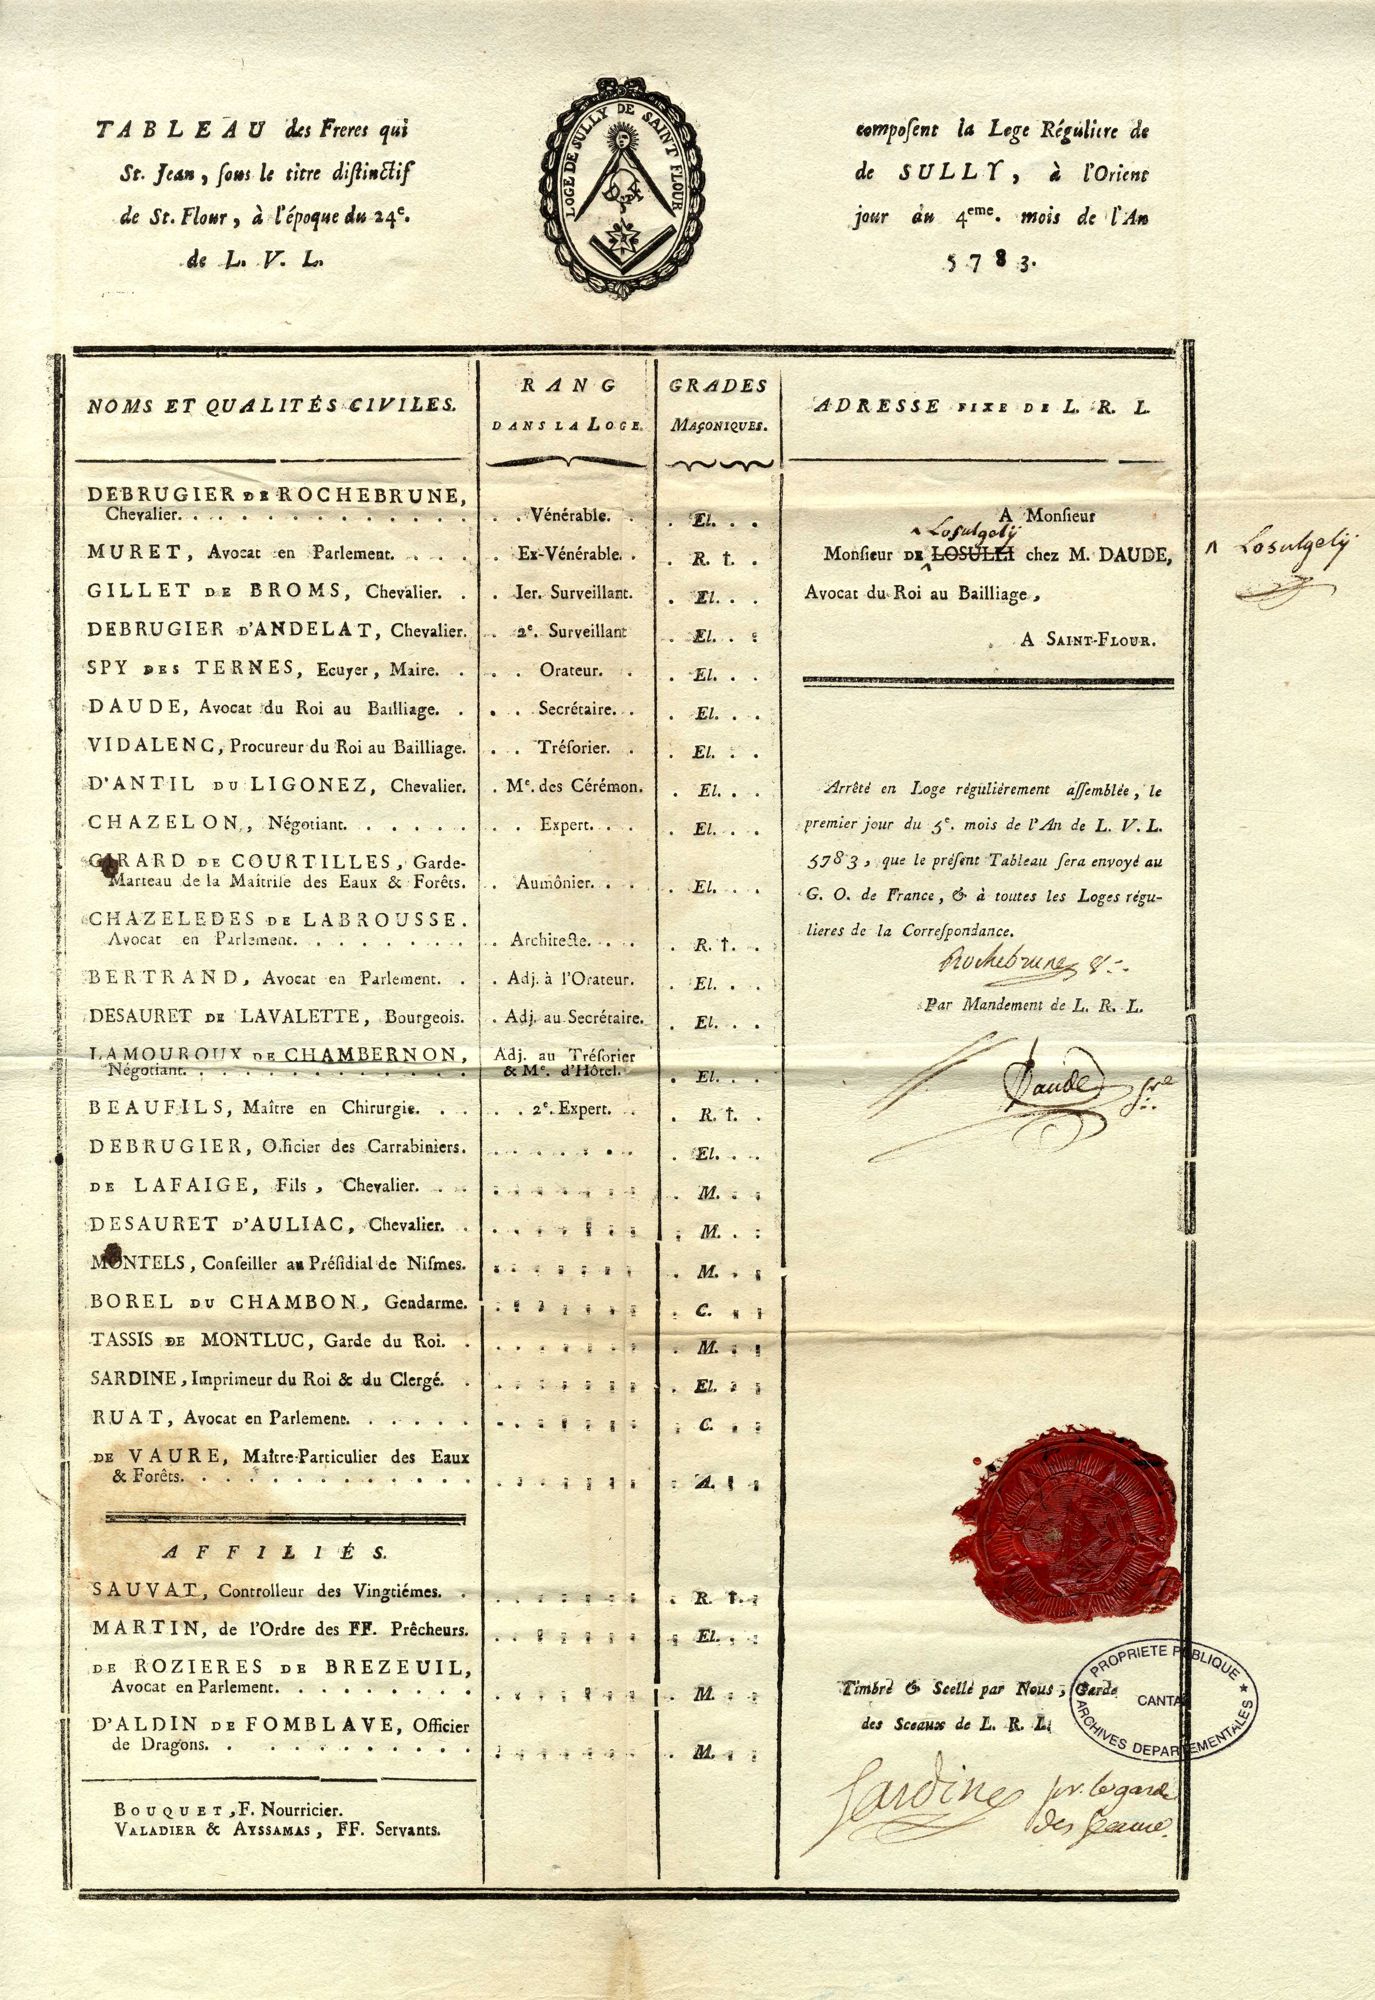 TABLEAU des Freres qui composent la Loge Réguliere de
St. Jean, sous le titre distinctif de SULLY, à l'Orient
de St. Flour, à l'époque du 24e. jour du 4eme. mois de l'An
de L. V. L. 5783.
LOGE DE SULLY DE SAINT FLOUR
NOMS ET QUALITÉS CIVILES.
RANG
DANS LA LOGE.
GRADES
MAÇONIQUES.
ADRESSE FIXE DE L. R. L.
DEBRUGIER DE ROCHEBRUNE,
Chevalier. . . Vénérable. . El. . .
MURET, Avocat en Parlement. . . Ex-Vénérable. . R. †. .
GILLET DE BROMS, Chevalier. . . Ier. Surveillant. . El. . .
DEBRUGIER D'ANDELAT, Chevalier. . 2e. Surveillant . El. . .
SPY DES TERNES, Ecuyer, Maire. . . Orateur. . El. . .
DAUDE, Avocat du Roi au Bailliage. . . Secrétaire. . El. . .
VIDALENC, Procureur du Roi au Bailliage. . Trésorier. . El. . .
D'ANTIL DU LIGONEZ, Chevalier. . Me. des Cérémon. . El. . .
CHAZELON, Négotiant. . . Expert. . El. . .
GIRARD DE COURTILLES, Garde-
Marteau de la Maîtrise des Eaux & Forêts. . Aumônier. . El. . .
CHAZELEDES DE LABROUSSE.
Avocat en Parlement. . . Architecte. . R. †. .
BERTRAND, Avocat en Parlement. . . Adj. à l'Orateur. . El. . .
DESAURET DE LAVALETTE, Bourgeois. . Adj. au Secrétaire. . El. . .
LAMOUROUX DE CHAMBERNON, Adj. au Trésorier
Négotiant. . . & Me. d'Hôtel. . El. . .
BEAUFILS, Maître en Chirurgie. . . 2e. Expert. . R. †. .
DEBRUGIER, Officier des Carrabiniers. . El. . .
DE LAFAIGE, Fils, Chevalier. . . M. . .
DESAURET D'AULIAC, Chevalier. . . M. . .
MONTELS, Conseiller au Présidial de Nismes. . M. . .
BOREL DU CHAMBON, Gendarme. . C. . .
TASSIS DE MONTLUC, Garde du Roi. . . M. . .
SARDINE, Imprimeur du Roi & du Clergé. . . El. . .
RUAT, Avocat en Parlement. . . C. . .
DE VAURE, Maître-Particulier des Eaux
& Forêts. . . A. . .
AFFILIÉS.
SAUVAT, Controlleur des Vingtiémes. . . R. †. .
MARTIN, de l'Ordre des FF. Prêcheurs. . El. . .
DE ROZIERES DE BREZEUIL,
Avocat en Parlement. . . M. . .
D'ALDIN DE FOMBLAVE, Officier
de Dragons. . . M. . .
BOUQUET, F. Nourricier.
VALADIER & AYSSAMAS, FF. Servants.
A Monsieur
^ Losulgelij
Monsieur DE LOSULEI chez M. DAUDE, ^ Losulgelij
Avocat du Roi au Bailliage,
A SAINT-FLOUR.
Arrêté en Loge réguliérement assemblée, le
premier jour du 5e. mois de l'An de L. V. L.
5783, que le présent Tableau sera envoyé au
G. O. de France, & à toutes les Loges régu-
lieres de la Correspondance.
Rochebrune
Par Mandement de L. R. L.
Daude
Timbré & Scellé par Nous, Garde
des Sceaux de L. R. L.
PROPRIETE PUBLIQUE
CANTAL
ARCHIVES DEPARTEMENTALES
Sardine pr. le garde
des Sceaux.